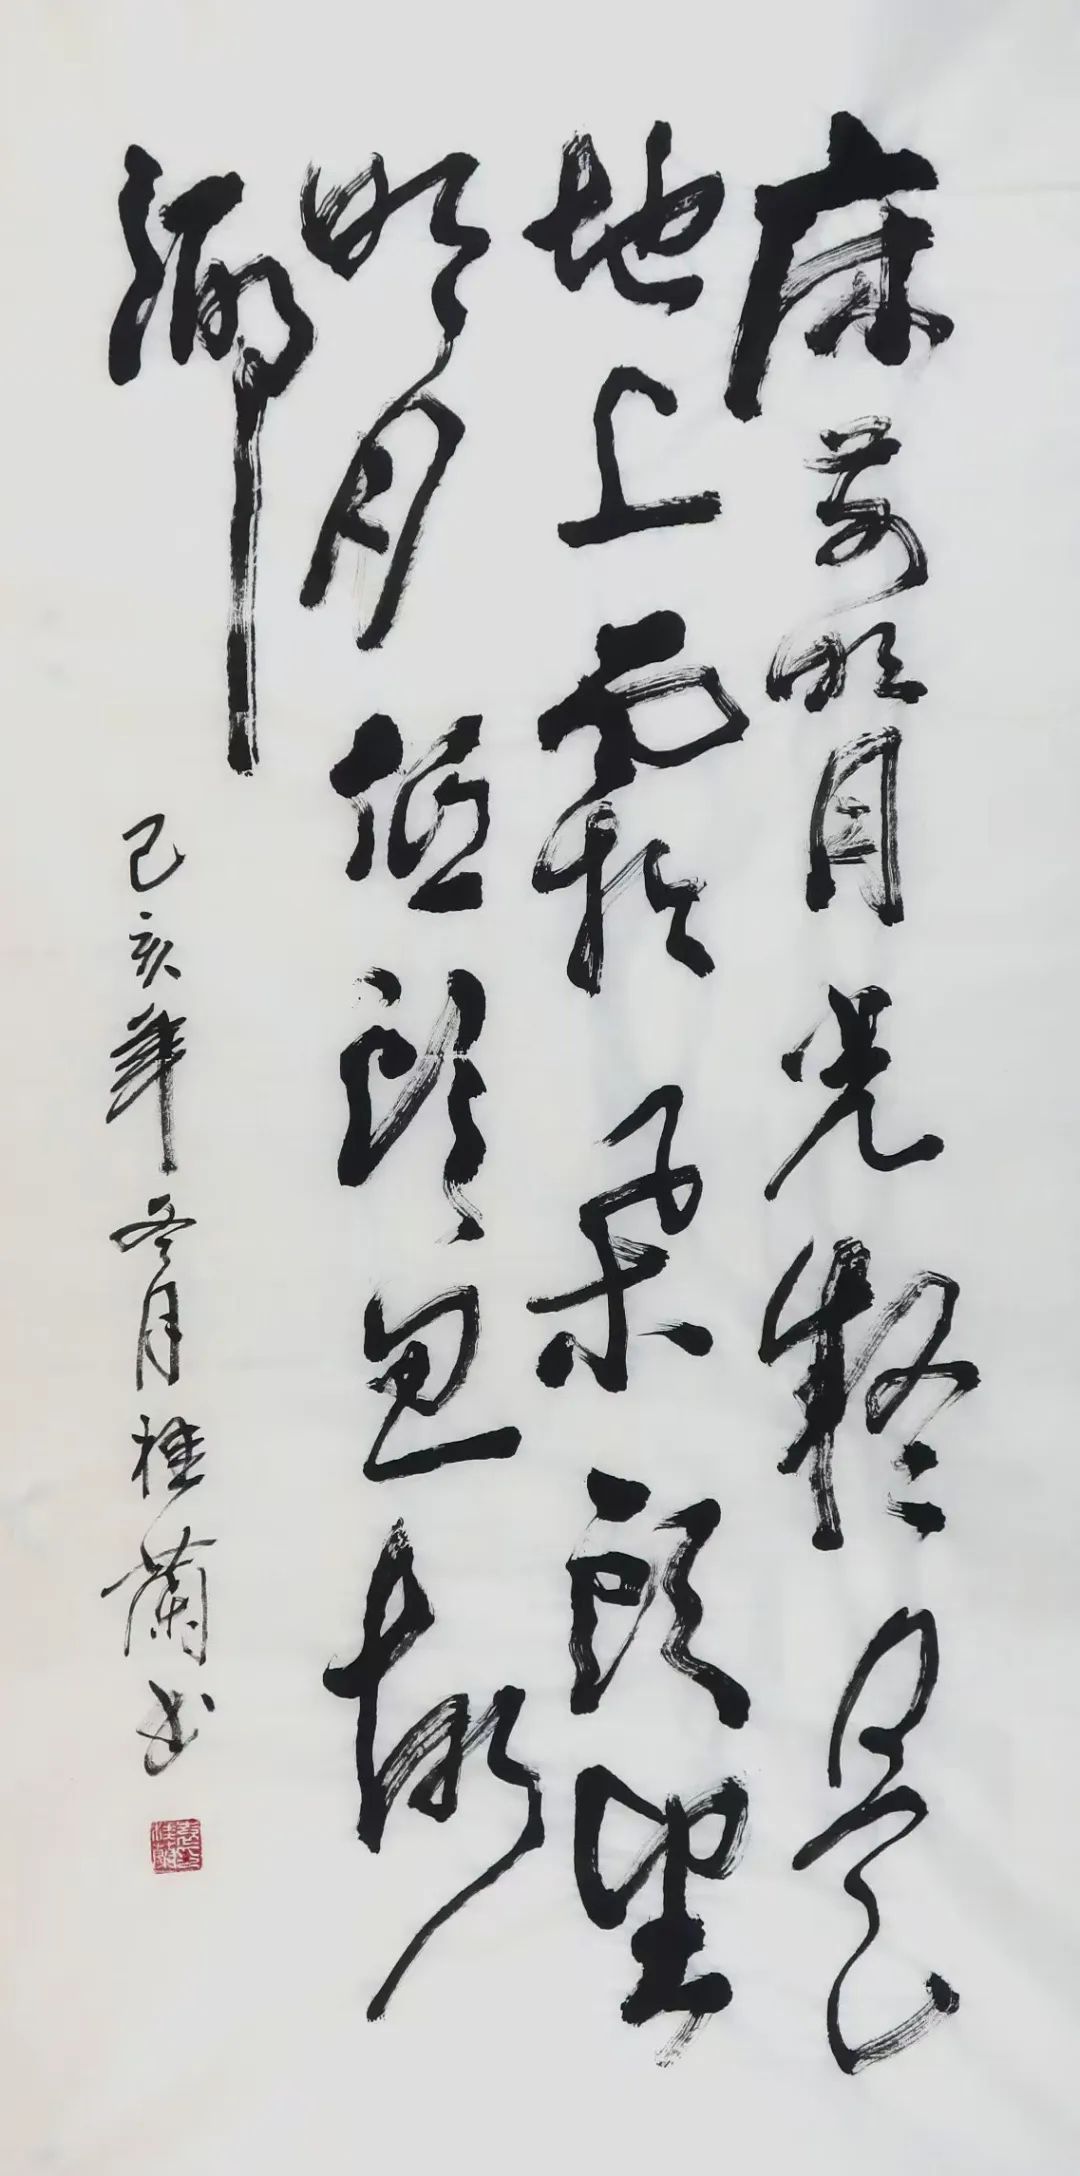 床前明月光疑是
地上霜舉頭望
明月低頭思故
鄉
己亥年冬月桂蘭书